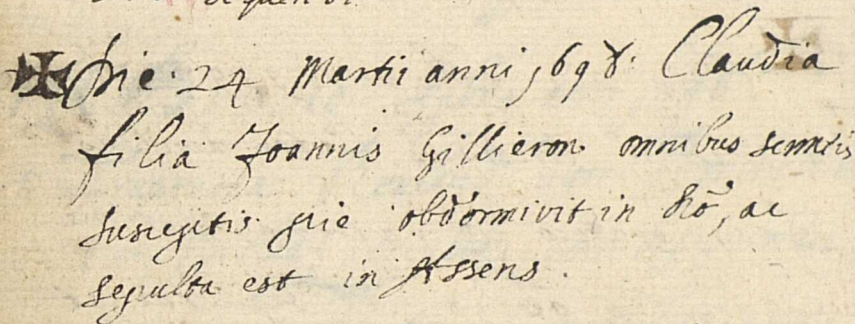 Die 24 Martii anni 1698. Claudia
filia Joannis Gillieron omnibus
susceptis pie obdormivit in Dño, ac
sepulta est in Assens.